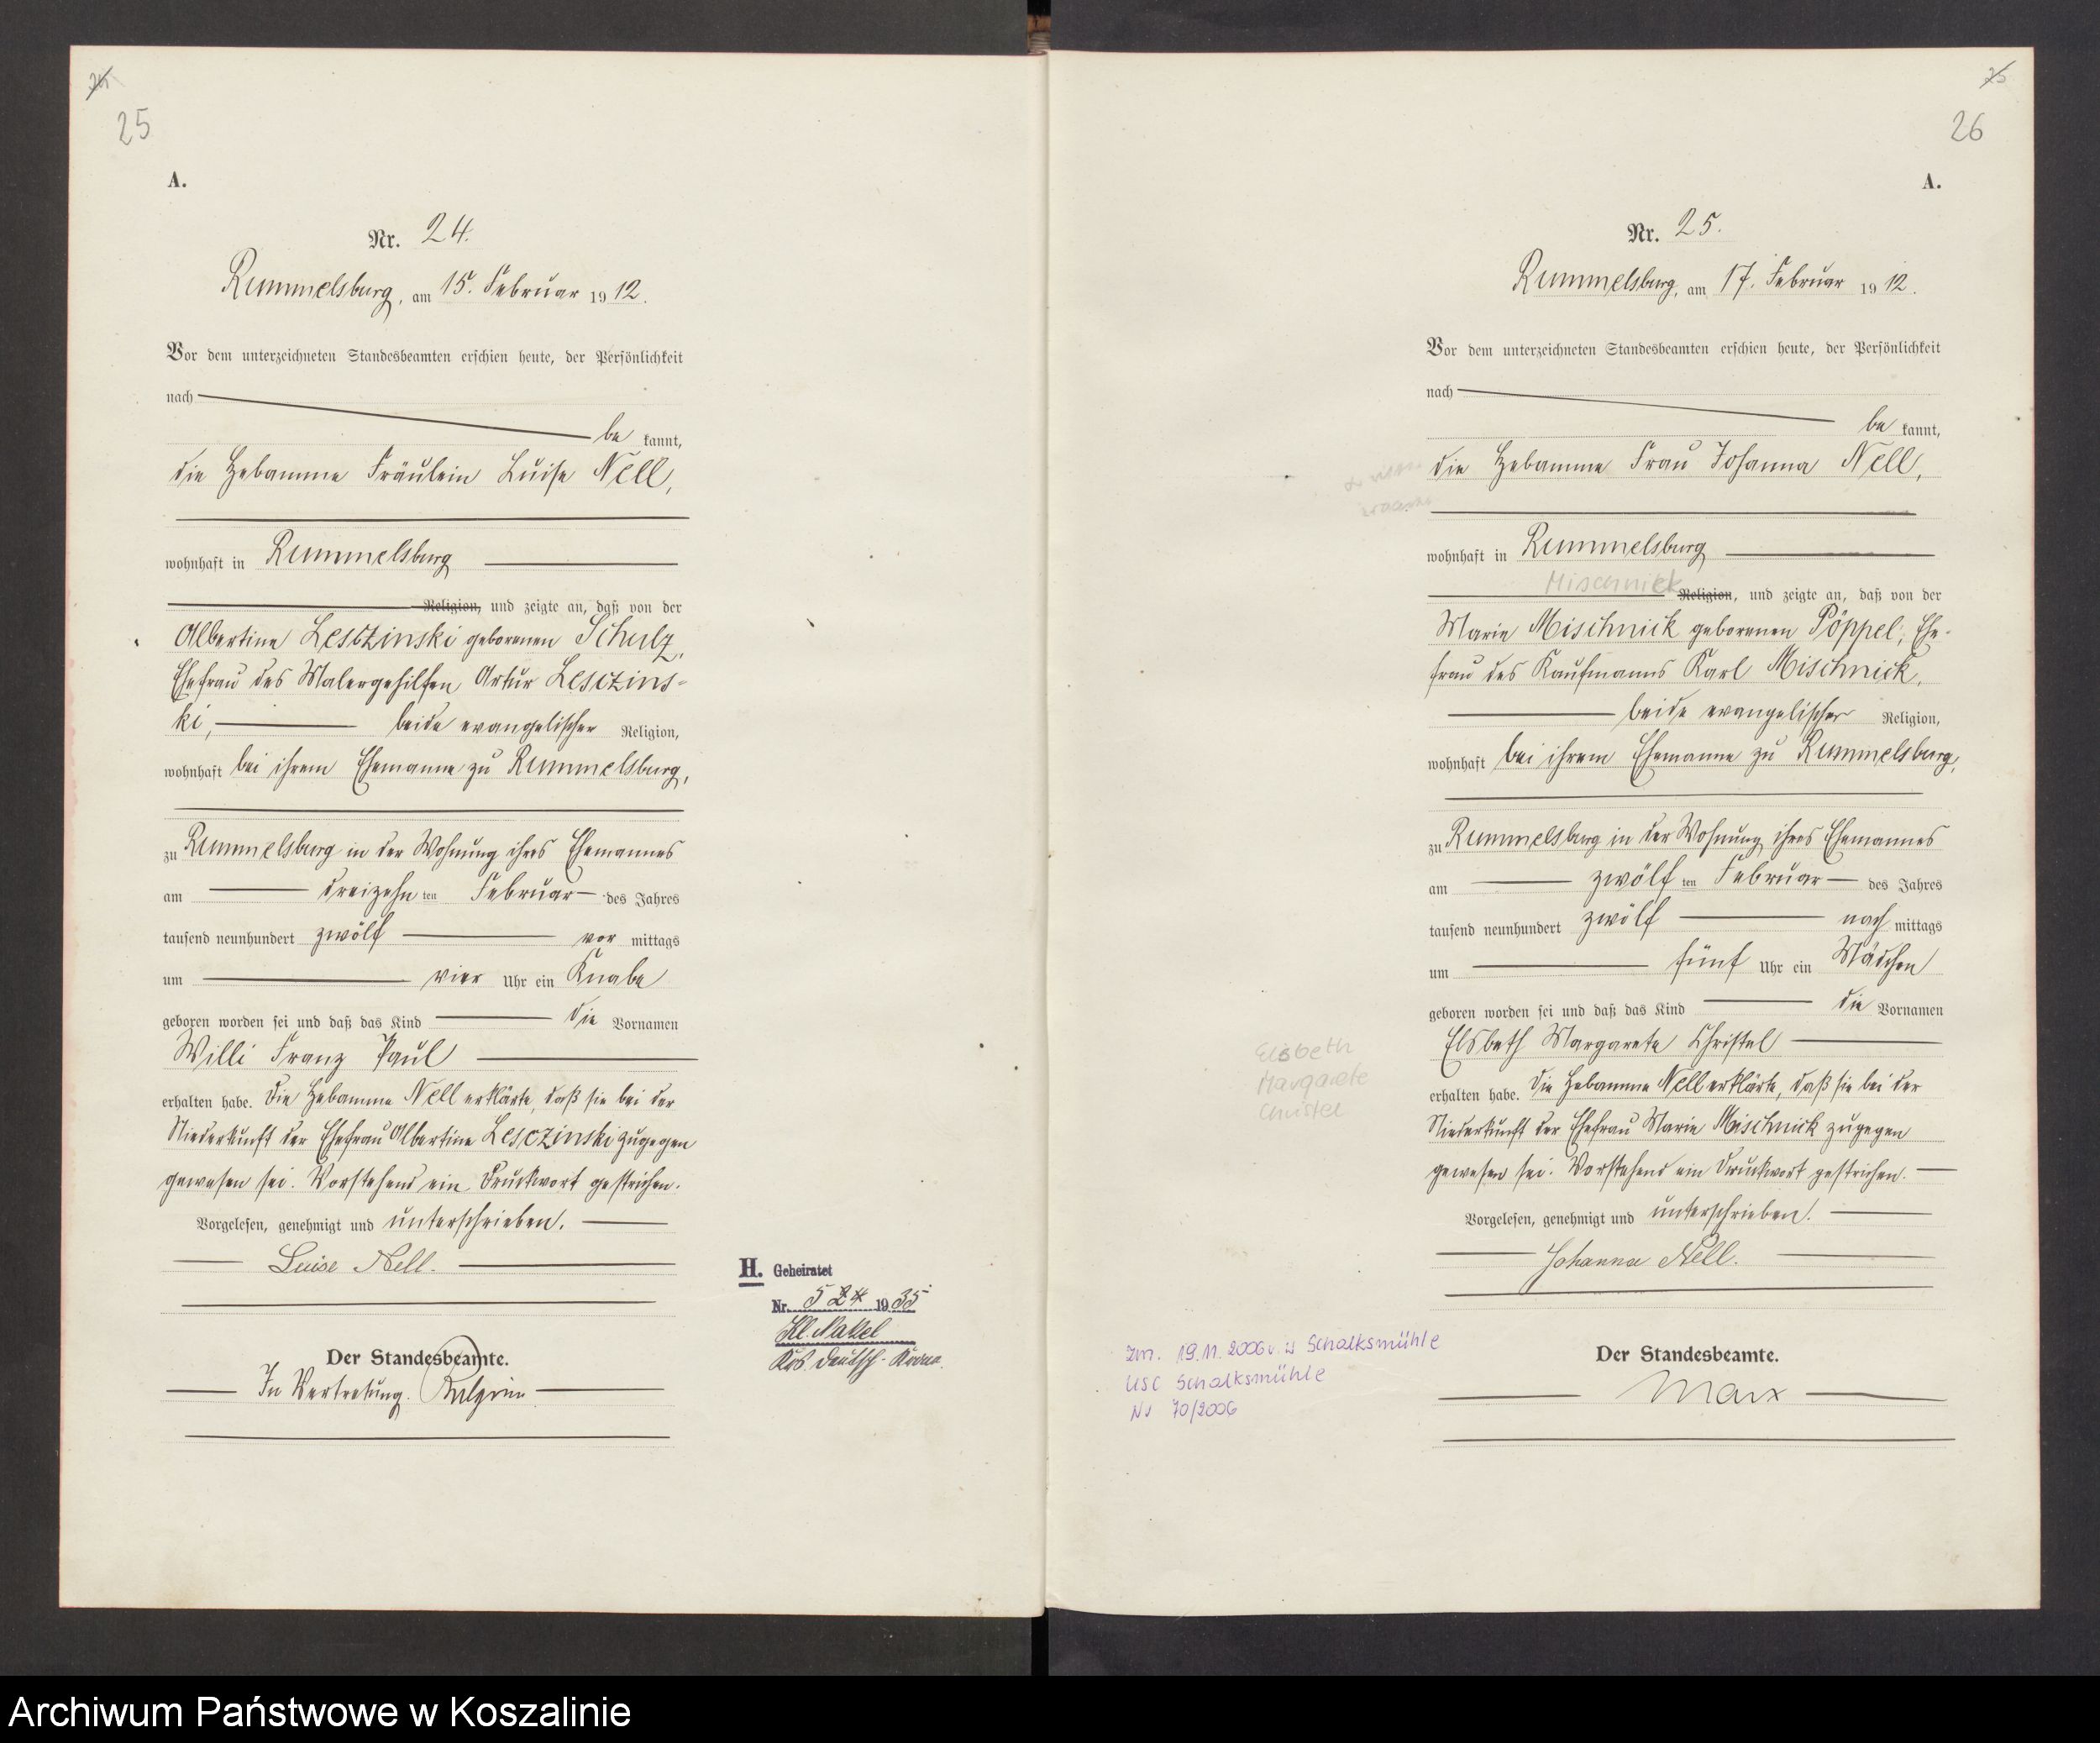 25
A.
Nr. 24.
Rummelsburg, am 15. Februar 1912.
Vor dem unterzeichneten Standesbeamten erschien heute, der Persönlichkeit
nach
be kannt,
die Hebamme Fräulein Luise Nell,
wohnhaft in Rummelsburg
Religion, und zeigte an, daß von der
Albertine Lesczinski geborenen Schulz,
Ehefrau des Malergehilfen Artur Lesczins-
ki, beide evangelischer Religion,
wohnhaft bei ihrem Ehemanne zu Rummelsburg,
zu Rummelsburg in der Wohnung ihres Ehemannes
am dreizehn ten Februar des Jahres
tausend neunhundert zwölf vor mittags
um vier Uhr ein Knabe
geboren worden sei und daß das Kind die Vornamen
Willi Franz Paul
erhalten habe. Die Hebamme Nell erklärte, daß sie bei der
Niederkunft der Ehefrau Albertine Lesczinski zugegen
gewesen sei. Vorstehend ein Druckwort gestrichen.
Vorgelesen, genehmigt und unterschrieben.
Luise Nell.
Der Standesbeamte.
In Vertretung.
H. Geheiratet
Nr. 1935
Kl. Nakel
Krs. Deutsch-Krone.
26
A.
Nr. 25.
Rummelsburg, am 17. Februar 1912.
Vor dem unterzeichneten Standesbeamten erschien heute, der Persönlichkeit
nach
be kannt,
die Hebamme Frau Johanna Nell,
wohnhaft in Rummelsburg
Mischnick
Religion, und zeigte an, daß von der
Marie Mischnick geborenen Pöppel, Ehe-
frau des Kaufmanns Karl Mischnick,
beide evangelischer Religion,
wohnhaft bei ihrem Ehemanne zu Rummelsburg,
zu Rummelsburg in der Wohnung ihres Ehemannes
am zwölf ten Februar des Jahres
tausend neunhundert zwölf nach mittags
um fünf Uhr ein Mädchen
geboren worden sei und daß das Kind die Vornamen
Elsbeth Margarete Christel
erhalten habe. Die Hebamme Nell erklärte, daß sie bei der
Niederkunft der Ehefrau Marie Mischnick zugegen
gewesen sei. Vorstehend ein Druckwort gestrichen.
Vorgelesen, genehmigt und unterschrieben.
Johanna Nell.
Der Standesbeamte.
Marx
Elsbeth
Margarete
Christel
zm. 19.11.2006 r. w Schalksmühle
USC Schalksmühle
Nr 70/2006
Archiwum Państwowe w Koszalinie